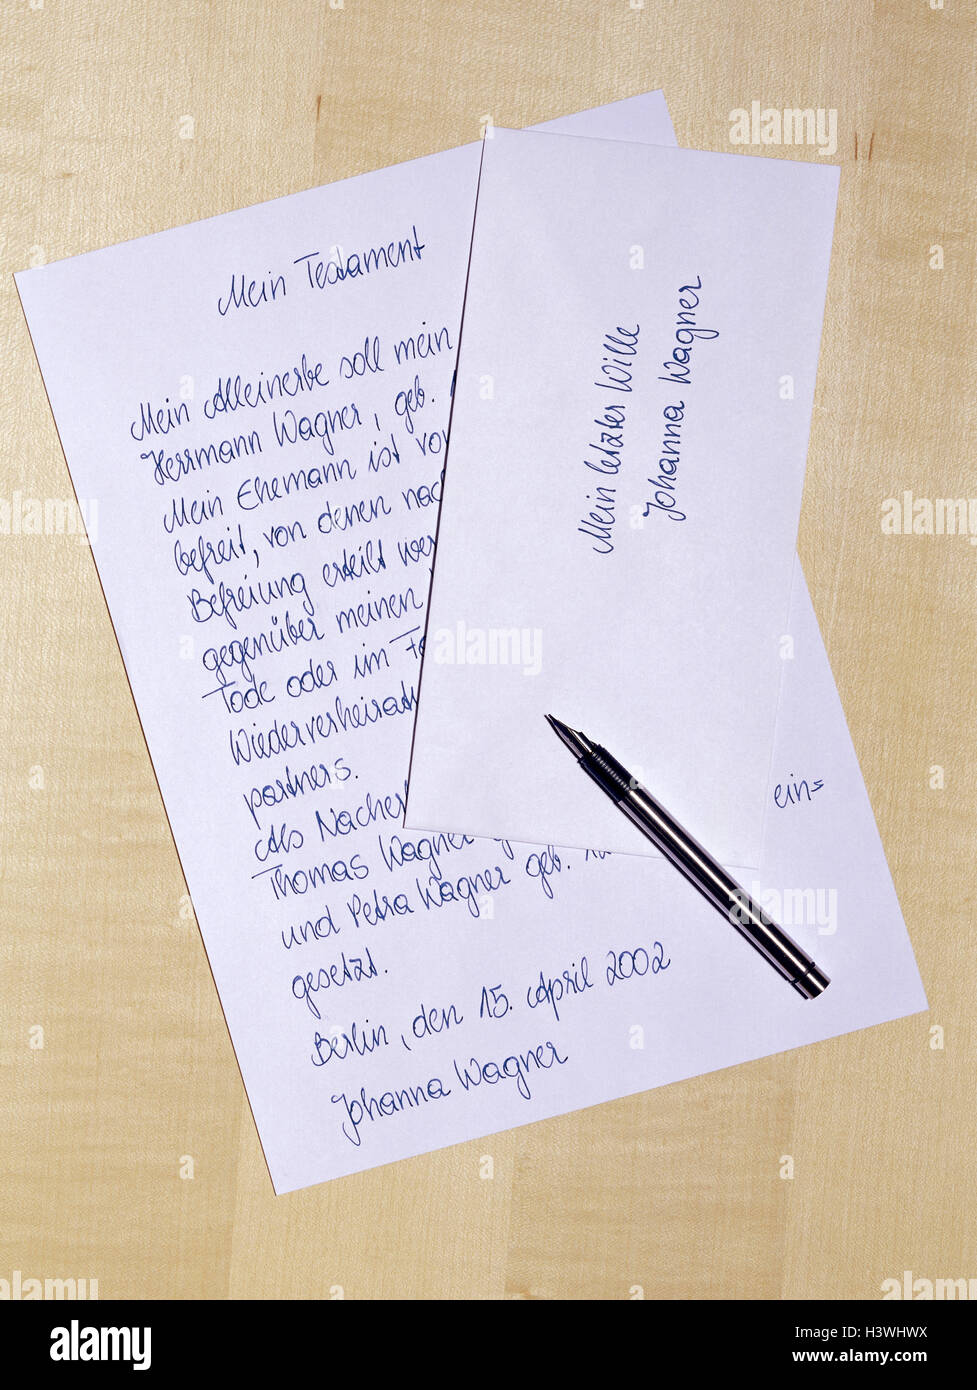 Mein Testament
Mein Alleinerbe soll mein
Herrmann Wagner, geb.
Mein Ehemann ist
befreit, von denen
Befreiung erteilt
gegenüber meinen
Tode oder im
partners.
Als
Thomas Wagner
ein=
und Petra Wagner geb.
gesetzt.
Berlin, den 15. April 2002
Johanna Wagner
Mein letzter Wille
Johanna Wagner
alamy
alamy
Image ID: H3WHWX
www.alamy.com